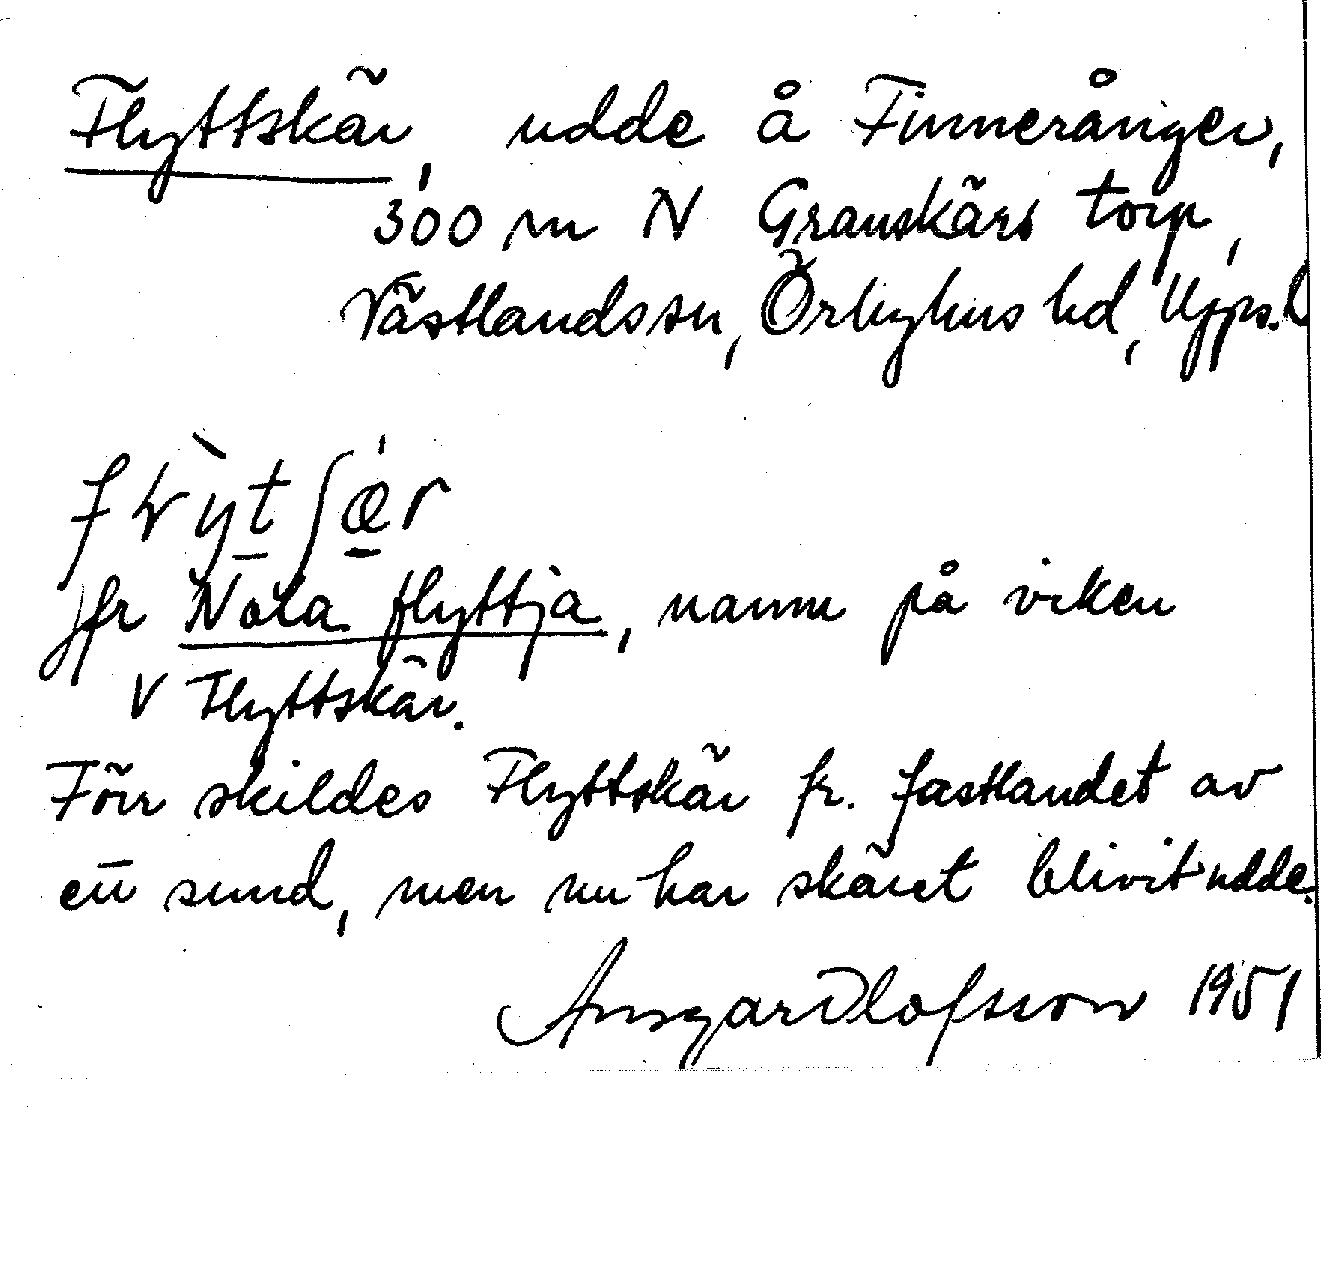 Flyttskär, udde å Finnerånger,
300 m N Granskärs torp,
Västlandssn, Örbyhus hd, Upps. l
jfr Nola flyttja, namn på viken
V Flyttskär.
Förr skildes Flyttskär fr. fastlandet av
ett sund, men nu har skäret blivit udde.
Ansgar Olofsson 1951